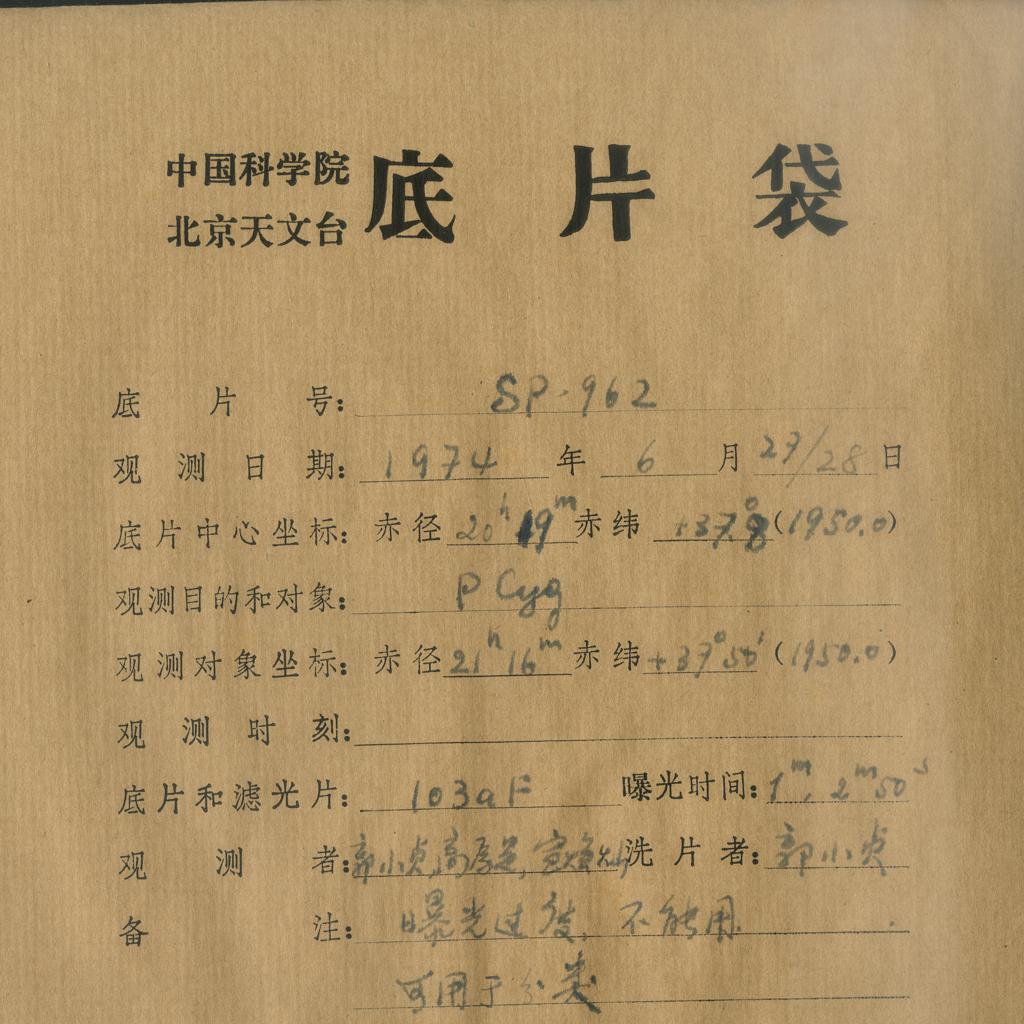 中国科学院
北京天文台
底片袋
底片号: SP-962
观测日期: 1974年6月27/28日
底片中心坐标: 赤径20h19m赤纬+37°8(1950.0)
观测目的和对象: P Cyg
观测对象坐标: 赤径21h16m赤纬+37°50′(1950.0)
观测时刻:
底片和滤光片: 103aF 曝光时间: 1m, 2m50s
观测者: 郭小贞, 洗片者: 郭小贞
备注: 曝光过度, 不能用.
可用于分类